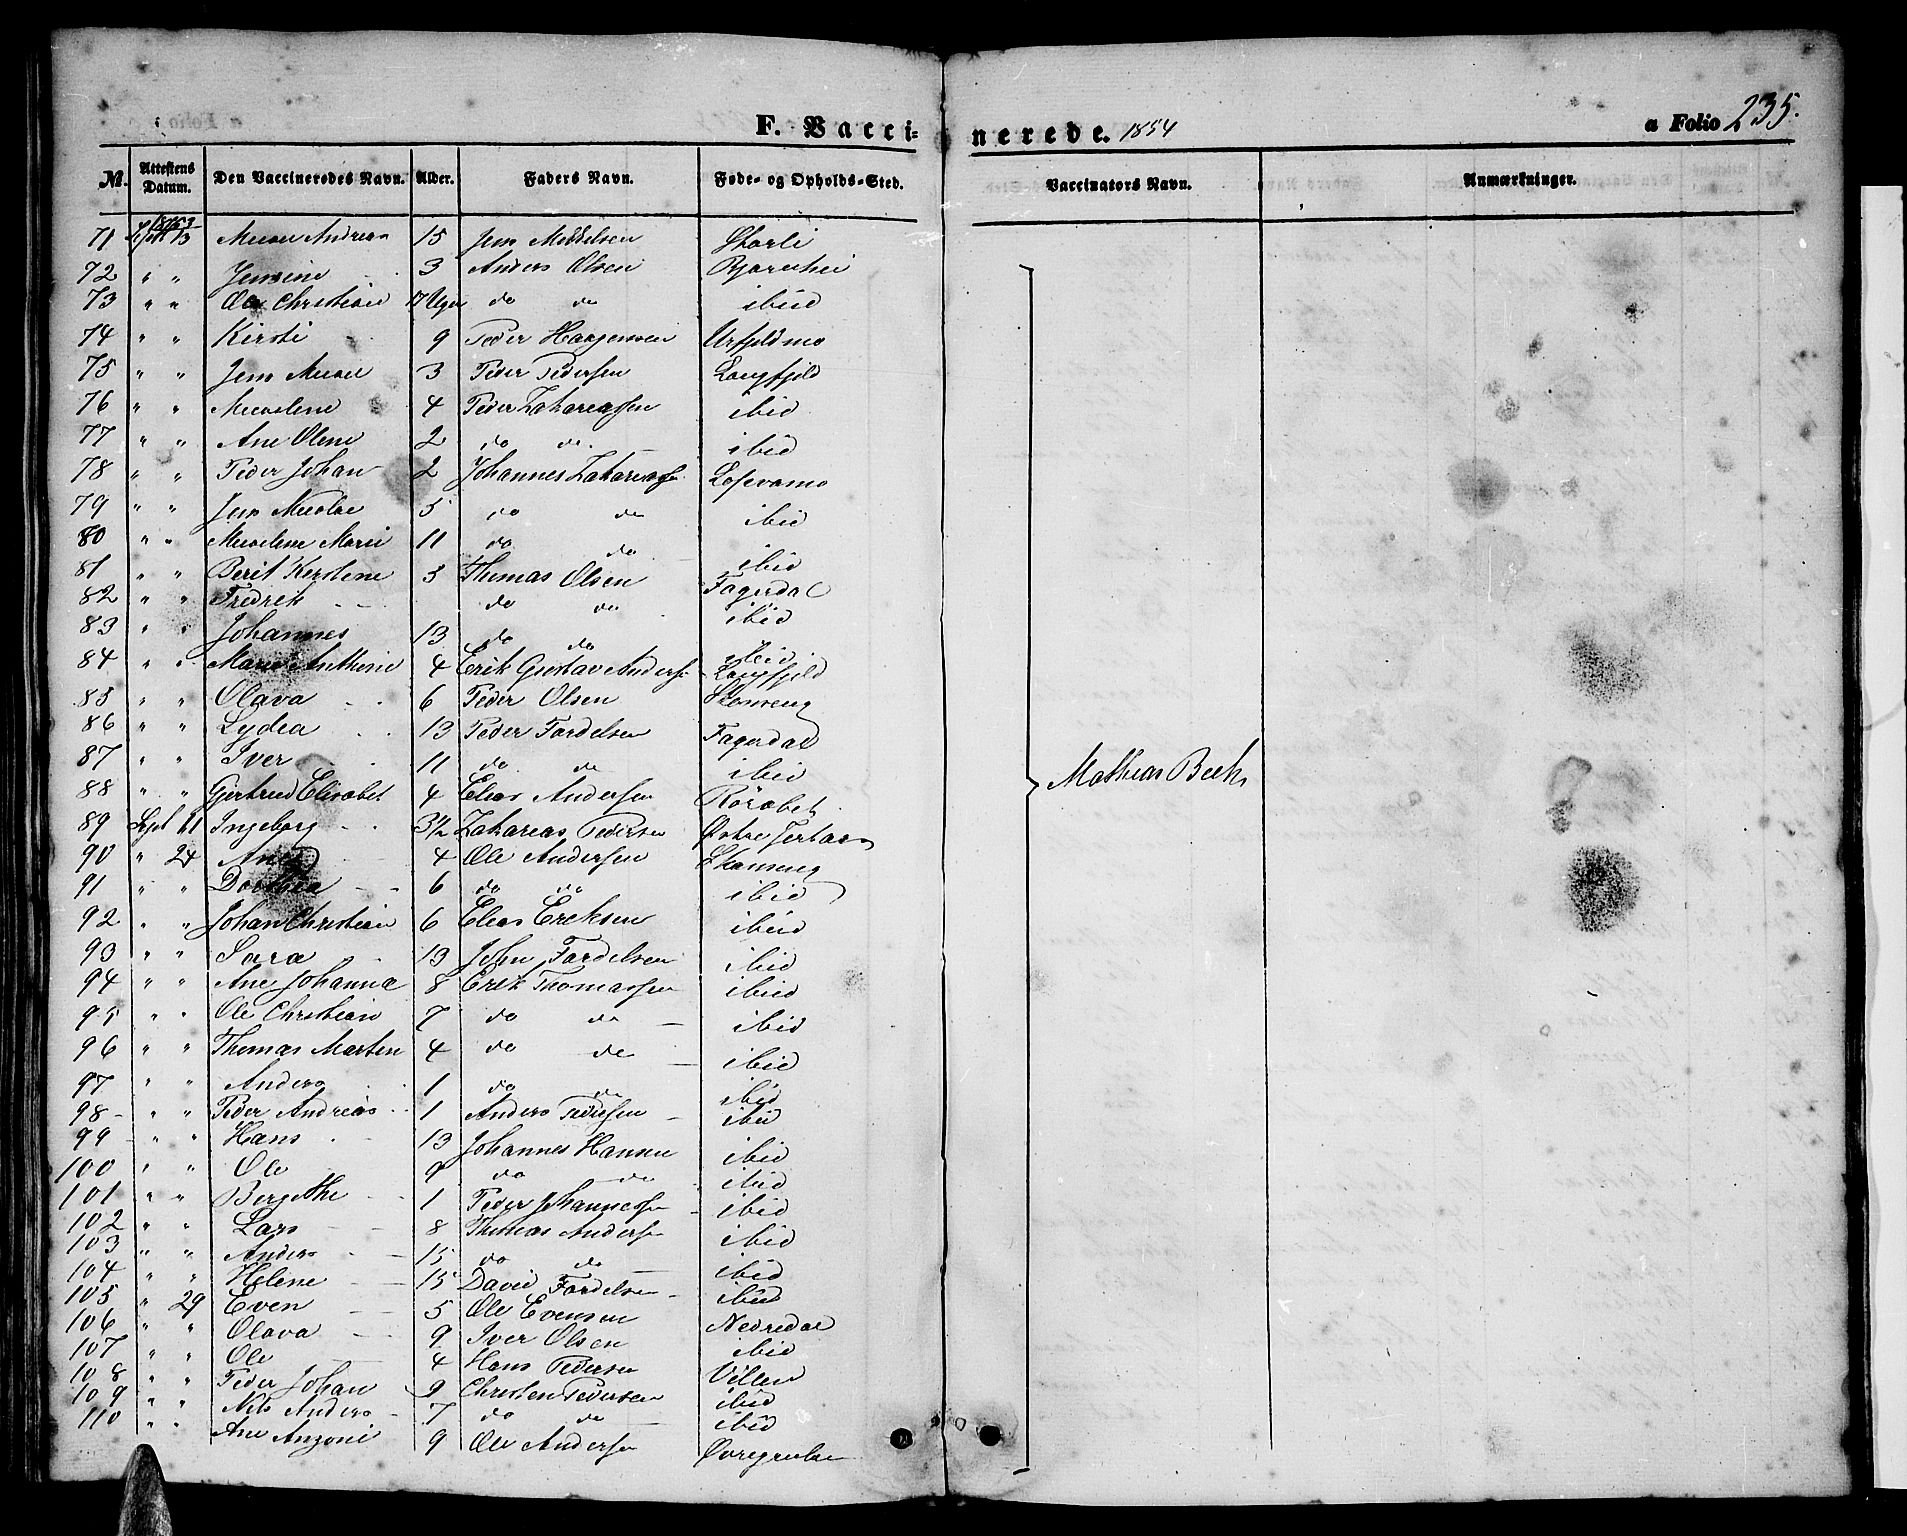 F. Vaccinerede. 1854
a Folio 235.
№. Attestens Datum. Den Vaccineredes Navn. Alder. Faders Navn. Føde- og Opholds-Sted. Vaccinators Navn. Anmærkninger.
1853
71 Sept 13 Andreas 15 Jens Mikkelsen Storli
72 " " Jensine 3 Anders Olsen
73 " " Ole Christian 17 Uger do do ibid
74 " " Kirsti 9 Peder Haagensen Urfjeldmo
75 " " Jens 3 Peder Pedersen Langfjeld
76 " " 4 Peder Zakariassen ibid
77 " " Ane Olene 2 do do ibid
78 " " Peder Johan 2 Johannes Zakariass
79 " " Jens Nicolai 5 do do ibid
80 " " Marie 11 do do ibid
81 " " Berit Kerstine 3 Thomas Olsen Fagerdal
82 " " Fredrik do do ibid
83 " " Johannes 13 do do ibid
84 " " Maria Anthonie 4 Erik Gustav Anders Langfjeld
85 " " Olava 6 Peder Olsen Skonseng
86 " " Lydia 13 Peder Fordelsen Fagerdal
87 " " Iver 11 do do ibid
88 " " Gjertrud Elisabet 4 Elias Andersen Røvabet
89 Sept 21 Ingeborg 3½ Zakarias Pedersen Østre
90 " 24 Ane 4 Ole Andersen Skonseng
91 " " Dorthea 6 do do ibid
92 " " Johan Christian 6 Elias Eriksen ibid
93 " " Sara 13 John Fordelsen ibid
94 " " Ane Johanna 8 Erik Thomassen ibid
95 " " Ole Christian 7 do do ibid
96 " " Thomas Marten 4 do do ibid
97 " " Anders 1 do do ibid
98 " " Peder Andreas 1 Anders Pedersen ibid
99 " " Hans 13 Johannes Hansen ibid
100 " " Ole 9 do do ibid
101 " " Bergithe 1 Peder Johannessen ibid
102 " " Lars 8 Thomas Anders ibid
103 " " Anders 15 do do ibid
104 " " Helene 15 David Fordelsen ibid
105 " 29 Even 5 Ole Evensen Nedredal
106 " " Olava 9 Iver Olsen ibid
107 " " Ole 4 Hans Pedersen Villen
108 " " Peder Johan 9 Christen Pedersen ibid
109 " " Nils Anders 7 do do ibid
110 " " Ane Anzoni 9 Ole Anders Øvregrube
Mathias Beck